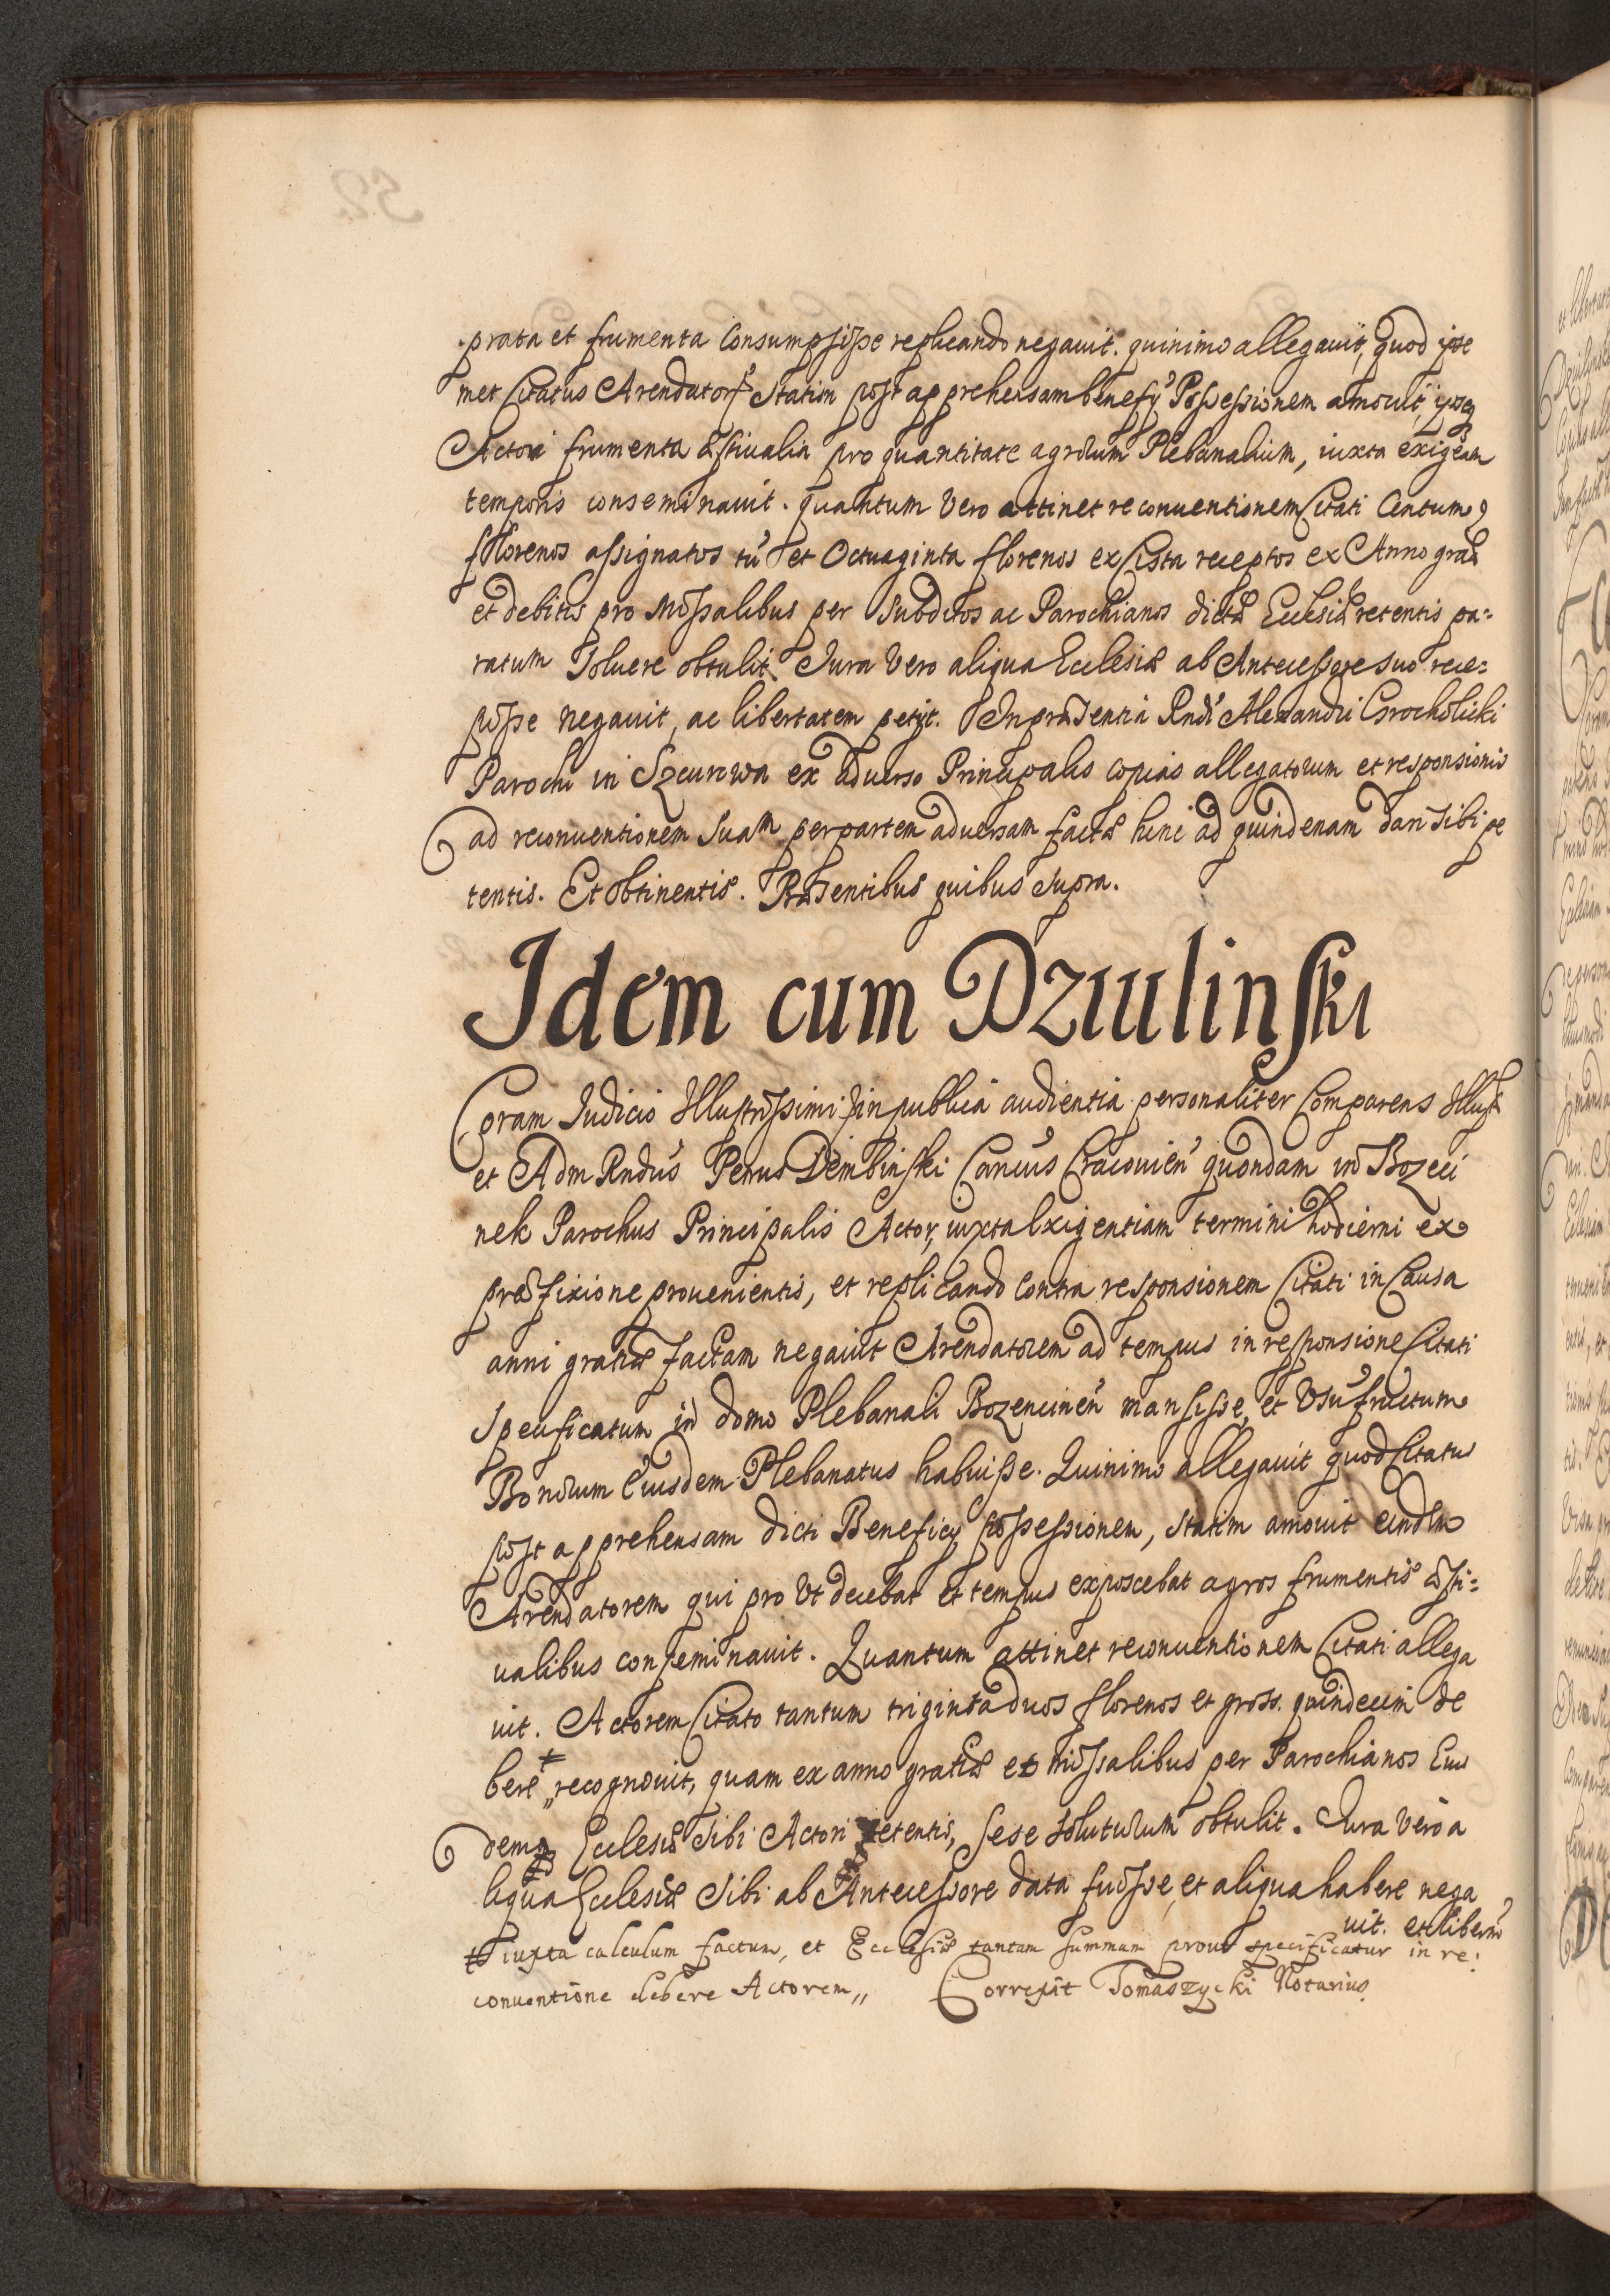 prata et frumenta Consumpsisse replicando negavit. quinimo allegavit, quod ipse
met Citatus Arendator Statim post apprehensam benefij Possessionem amovit, ipseq
Actori frumenta Æstiualia pro quantitate agrorum Plebanalium, iuxta exigeãm
temporis conseminauit. quantum Vero attinet reconuentionem Citati Centum
fflorenos assignatos tũ et Octuaginta florenos ex Cista receptos ex Anno graæ
et debitis pro Missalibus per Subditos ac Parochianos dictæ Ecclesiæ retentis pa=
ratum Soluere obtulit. Jura Vero aliqua Ecclesiæ ab Antecessore suo rece=
pisse negauit, ac libertatem petijt. In præsentia Rndi Alexandri Grocholicki
Parochi in Szczurowa ex aduerso Principalis copias allegatorum et responsionis
ad reconuentionem suam per partem aduersam factæ hinc ad quindenam dari sibi pe
tentis. Et obtinentis. Præsentibus quibus supra.
Idem cum Dziulinski
Coram Judicio Illustrissimi in publica audientia personaliter Comparens Illust
et Adm Rndus Petrus Dembinski Cancus Cracouien quondam in Bozeci
nek Parochus Principalis Actor, iuxta Exigentiam termini hodierni ex
præfixione prouenientis, et replicando Contra responsionem Citati in Causa
anni gratiæ factam negauit Arendatorem ad tempus in responsione Citati
Specificatum in domo Plebanali Bozencinen mansisse, et Usufructum
Bonorum Eiusdem Plebanatus habuisse. Quinimo allegauit quod Citatus
post apprehensam dicti Beneficij possessionem, statim amouit eundem
Arendatorem qui pro Ut decebat et tempus exposcebat agros frumentis æsti=
ualibus conseminauit. Quantum attinet reconuentionem Citati allega
uit. Actorem Citato tantum triginta duos florenos et gross. quindecim de
bere „recognouit, quam ex anno gratiæ et missalibus per Parochianos Eius
dem Ecclesiæ Sibi Actori retentis, sese soluturum obtulit. Jura Vero a
liqua Ecclesiæ Sibi ab Antecessore data fuisse, et aliqua habere nega
uit. et liberm
iuxta calculum factum, et Ecclesiæ tantam summam prout specificatur in re:
conuentione debere Actorem„ Correxit Tomaszycki Notarius.